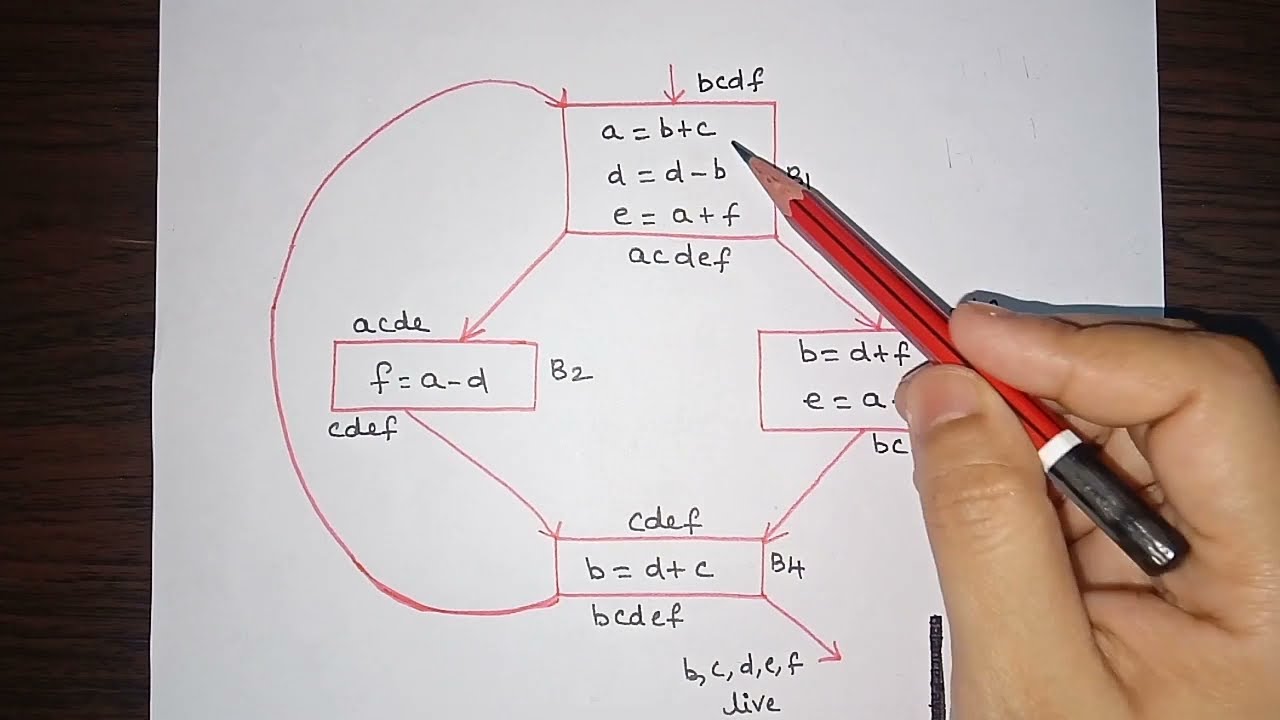 bcdf
a = b+c
d = d-b
e = a+f
B1
acdef
acde
f = a-d
B2
cdef
b = d+f
e = a
bc
cdef
b = d+c
B4
bcdef
b, c, d, e, f
live